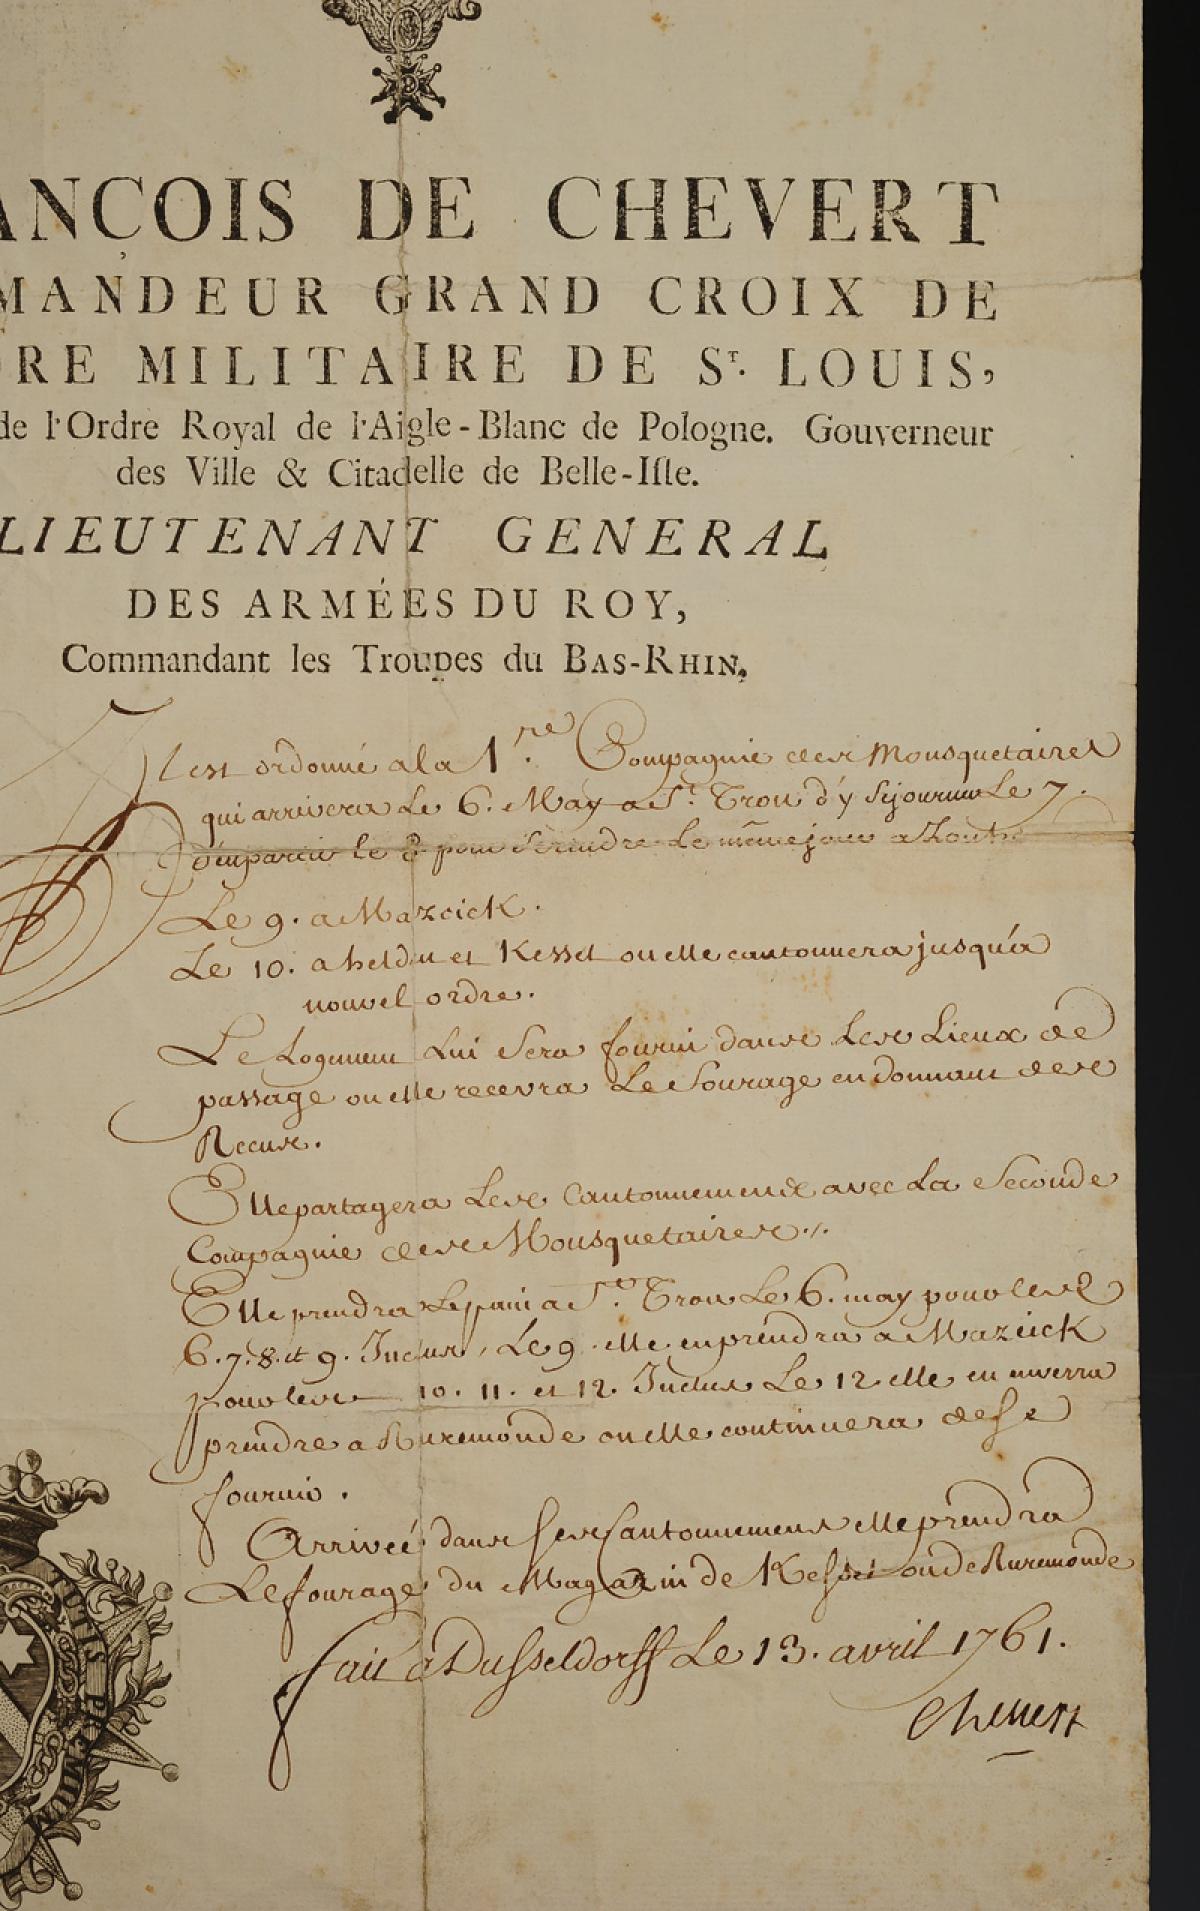 ANÇOIS DE CHEVERT
MANDEUR GRAND CROIX DE
RE MILITAIRE DE S.T LOUIS,
de l'Ordre Royal de l'Aigle-Blanc de Pologne. Gouverneur
des Ville & Citadelle de Belle-Iſle.
LIEUTENANT GENERAL
DES ARMÉES DU ROY,
Commandant les Troupes du BAS-RHIN.
Il est ordonné a la 1.re Compagnie des Mousquetaires
qui arrivera Le 6. May a St. Tron d'y Sejourner Le 7.
d'en partir le 8 pour Se rendre Le même jour a
Le 9. a Mazeick.
Le 10. a heldin et Kessel ou elle cantonnera jusqu'a
nouvel ordre.
Le Logement Lui Sera fourni dans Les Lieux de
passage ou elle recevra Le Fourage en donnant des
Recus.
Elle partagera Les Cantonnements avec La Seconde
Compagnie des Mousquetaires.
Elle prendra Le pain a St. Tron Le 6. may pour les
6. 7. 8. et 9. Inclus, Le 9 elle en prendra a Mazeick
pour les 10. 11. et 12. Inclus Le 12 elle en enverra
prendre a Ruremonde ou elle continuera de se
fournir.
Arrivée dans ses Cantonnemens elle prendra
Le fourage du Magazin de Kessel ou de Ruremonde
fait a Dusseldorff Le 13. avril 1761.
Chevert
OTIS PREMIUM